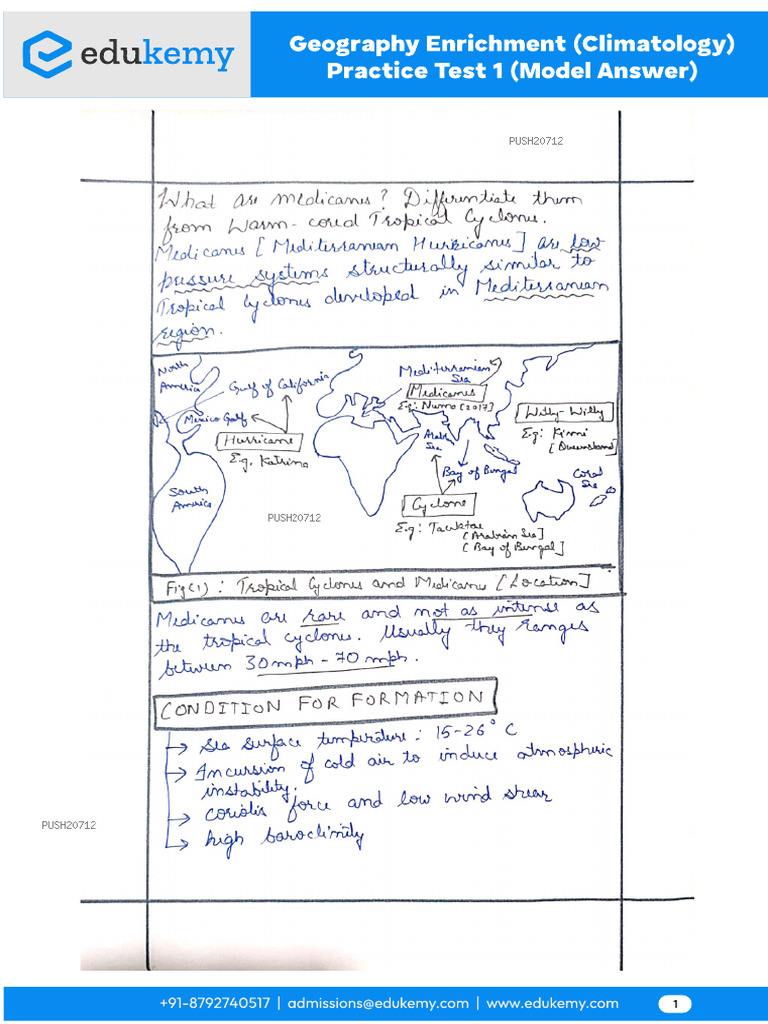 edukemy
Geography Enrichment (Climatology)
Practice Test 1 (Model Answer)
PUSH20712
What are medicanes? Differentiate them
from Warm-cored Tropical Cyclones.
Medicanes [Mediterranean Hurricanes] are low
pressure systems structurally similar to
Tropical Cyclones developed in Mediterranean
region.
North
America
Gulf of California
Mexico Gulf
Hurricane
E.g. Katrina
South
America
PUSH20712
Mediterranean
Sea
Medicanes
E.g: Numo (2017)
Arab
Sea
Bay of Bengal
Cyclone
E.g: Tauktae
[Arabian Sea]
[Bay of Bengal]
Willy-Willy
E.g:
[Queensland]
Coral
Sea
Fig(1): Tropical Cyclones and Medicane [Location]
Medicanes are rare and not as intense as
the tropical cyclones. Usually they ranges
between 30mph - 70 mph.
CONDITION FOR FORMATION
→ Sea surface temperature: 15-26° C
→ Incursion of cold air to induce atmospheric
instability.
→ coriolis force and low wind shear
PUSH20712
→ high baroclinity
+91-8792740517 | admissions@edukemy.com | www.edukemy.com
1